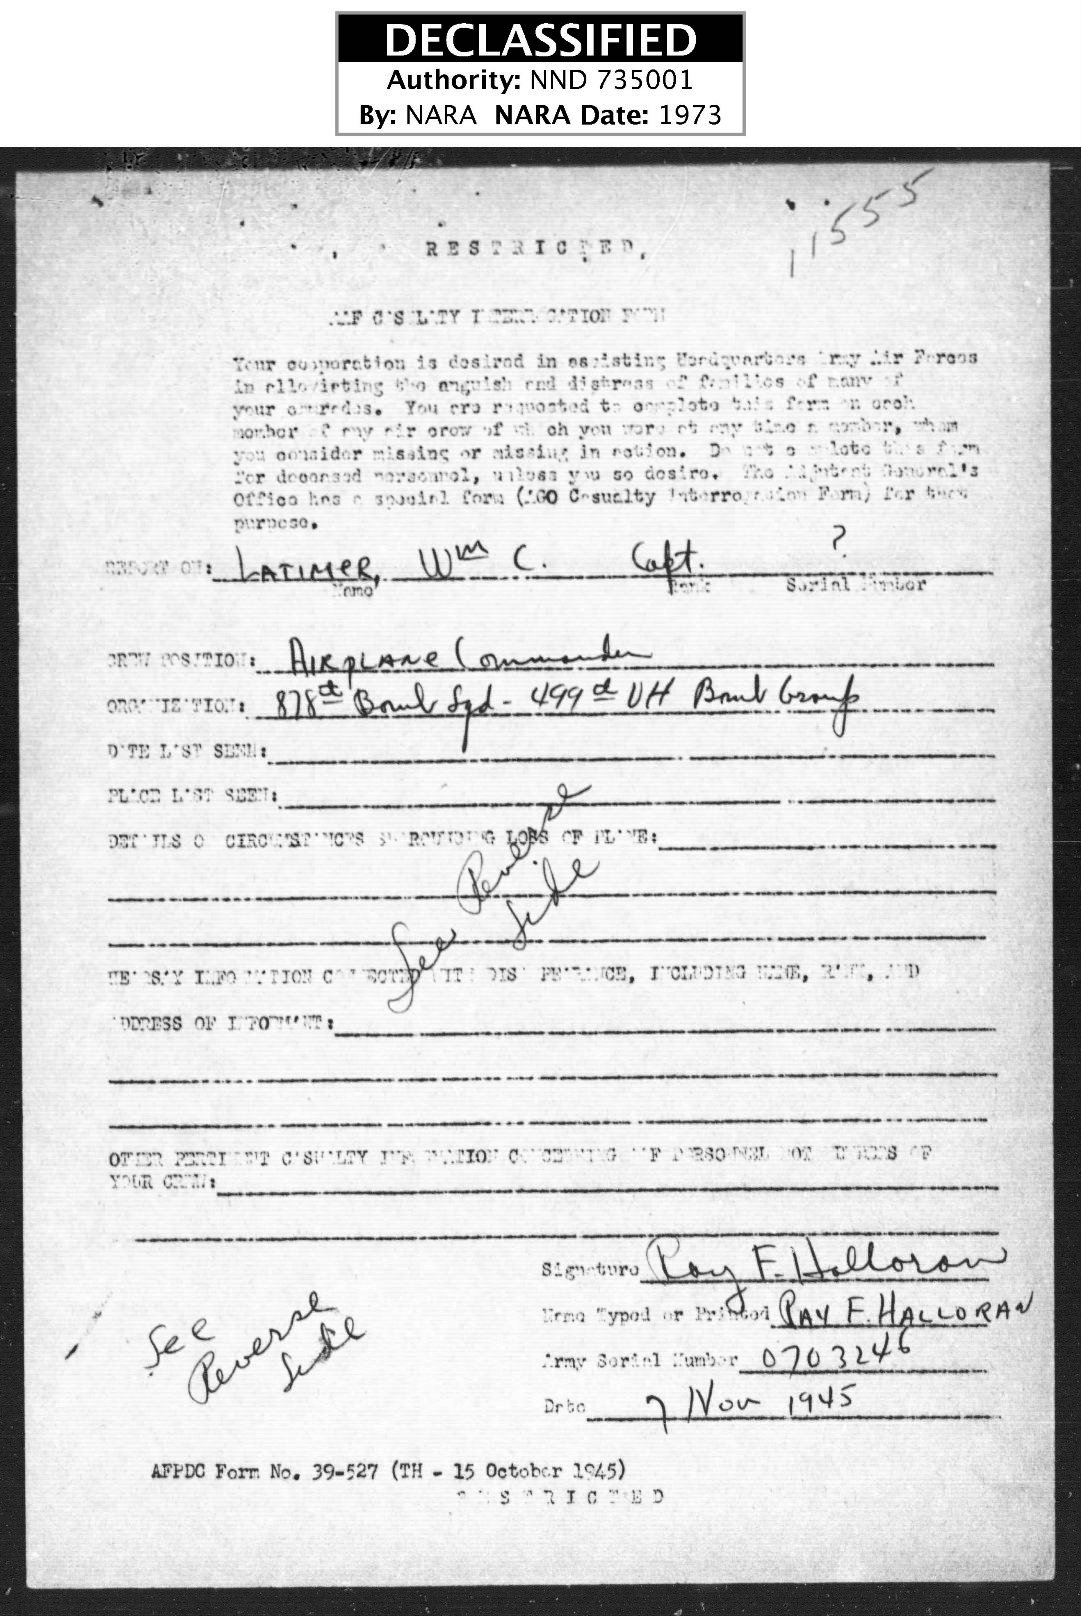 DECLASSIFIED
Authority: NND 735001
By: NARA NARA Date: 1973
11555
RESTRICTED
AAF CASUALTY INTERROGATION FORM
Your cooperation is desired in assisting Headquarters Army Air Forces
in alleviating the anguish and distress of families of many of
your comrades. You are requested to complete this form on each
member of any air crew of which you were at any time a member, whom
you consider missing or missing in action. Do not complete this form
for deceased personnel, unless you so desire. The Adjutant General's
Office has a special form (AGO Casualty Interrogation Form) for that
purpose.
REPORT ON: LATIMER, Wm C. Capt. ?
Name Rank Serial Number
CREW POSITION: AIRPLANE Commander
ORGANIZATION: 878th Bomb Sqd - 499th VH Bomb Group
DATE LAST SEEN:
PLACE LAST SEEN:
DETAILS OF CIRCUMSTANCES SURROUNDING LOSS OF PLANE:
See Reverse
Side
HEARSAY INFORMATION CONNECTED WITH DISAPPEARANCE, INCLUDING NAME, RANK, AND
ADDRESS OF INFORMANT:
OTHER PERTINENT CASUALTY INFORMATION CONCERNING AAF PERSONNEL NOT MEMBERS OF
YOUR CREW:
Signature Ray F. Halloran
Name Typed or Printed RAY F. HALLORAN
See
Reverse
Side
Army Serial Number 0703246
Date 7 Nov 1945
AFPDC Form No. 39-527 (TH - 15 October 1945)
RESTRICTED